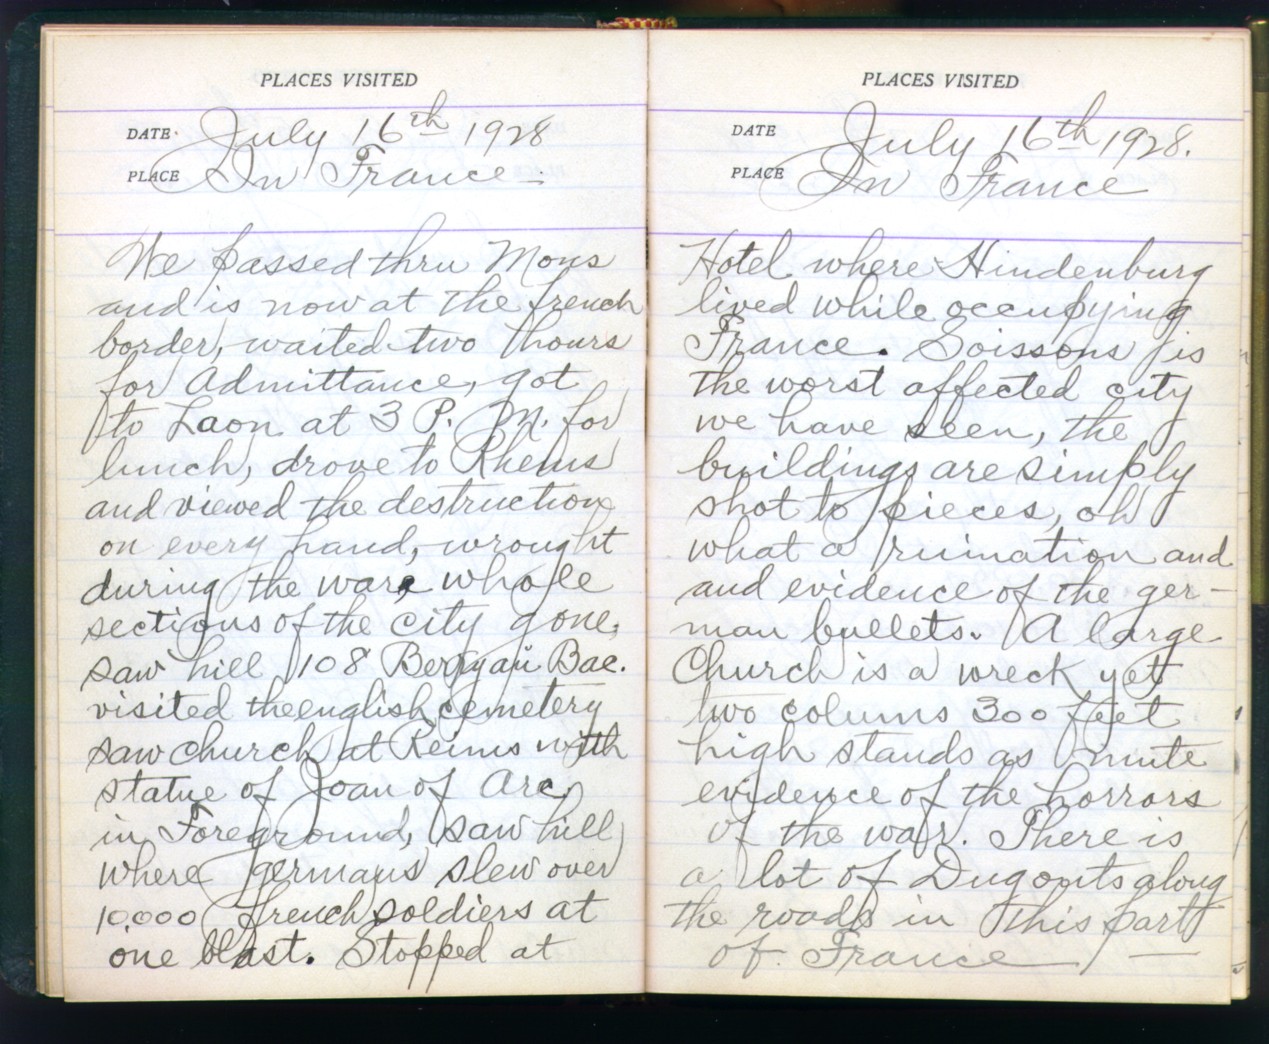 PLACES VISITED
DATE July 16th 1928
PLACE In France -
We passed thru Mons
and is now at the french
border, waited two hours
for Admittance, got
to Laon at 3 P. M. for
lunch, drove to Rheims
and viewed the destruction
on every hand, wrought
during the war, whole
sections of the city gone,
saw hill 108 Berryau Bac.
visited the english cemetery
saw church at Reims with
statue of Joan of Arc,
in Foreground, saw hill
where germans slew over
10000 french soldiers at
one blast. Stopped at
PLACES VISITED
DATE July 16th 1928.
PLACE In France
Hotel where Hindenburg
lived while occupying
France. Soissons is
the worst affected city
we have seen, the
buildings are simply
shot to pieces, oh
what a ruination and
and evidence of the ger-
man bullets. A large
Church is a wreck yet
two colums 300 feet
high stands as mute
evidence of the horrors
of the war. There is
a lot of Dugouts along
the roads in this part
of France —